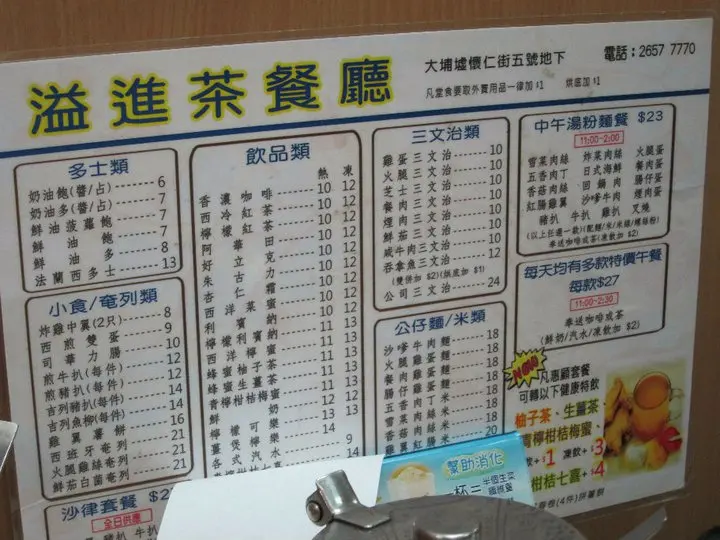 溢進茶餐廳
大埔墟懷仁街五號地下
電話：2657 7770
凡堂食要取外賣用品一律加 $1
烘底加 $1
多士類
奶油飽(醬/占) 6
奶油多(醬/占) 7
鮮油菠蘿飽 7
鮮油飽 7
鮮油多 8
法蘭西多士 13
小食/奄列類
炸雞中翼(2只) 8
西煎雙蛋 9
司華力腸 10
煎牛扒(每件) 12
煎豬扒(每件) 12
吉列豬扒(每件) 14
吉列魚柳(每件) 14
雞翼薯餅 16
西班牙奄列 21
火腿雞絲奄列 21
鮮茄白菌奄列 21
沙律套餐 $2
全日供應
飲品類
熱 凍
香濃咖啡 10 12
西冷紅茶 10 12
檸檬紅茶 10 12
阿華田 10 12
好立克 10 12
朱古力 10 12
杏仁霜 10 12
西洋菜蜜 10 12
利賓納 10 12
檸檬利賓納 11 13
西洋檸蜜 11 13
蜂蜜柚子茶 11 13
蜂蜜生薑茶 11 13
青檸柑桔梅蜜 11 13
鮮奶 12 13
檸樂 12 13
薑煲可樂 14
各式汽水 9
三文治類
雞蛋三文治 10
火腿三文治 10
芝士三文治 10
餐肉三文治 10
煙肉三文治 10
鮮茄三文治 10
咸牛肉三文治 12
吞拿魚三文治 12
(雙併加 $2)(烘底加 $1)
公司三文治 24
公仔麵/米類
沙嗲牛肉麵 18
火腿雞蛋麵 18
餐肉雞蛋麵 18
腸仔雞蛋麵 18
五香肉丁米 18
雪菜肉絲米 18
香菇肉絲米 18
紅腸雞翼米 20
中午湯粉麵餐 $23
11:00-2:00
雪菜肉絲 炸菜肉絲 火腿蛋
五香肉丁 日式海鮮 餐肉蛋
香菇肉絲 回鍋肉 腸仔蛋
紅腸雞翼 沙嗲牛肉 煙肉蛋
豬扒 牛扒 雞扒 叉燒
(以上任選一款)(配麵/米/米線/螺絲粉)
奉送咖啡或茶(凍飲加 $2)
每天均有多款特價午餐
每款$27
11:00-2:30
奉送咖啡或茶
(鮮奶/汽水/凍飲加 $2)
NEW
凡惠顧套餐
可轉以下健康特飲
柚子茶、生薑茶
青檸柑桔梅蜜、
熱飲+$1 凍飲+$3
柑桔七喜+$4
幫助消化